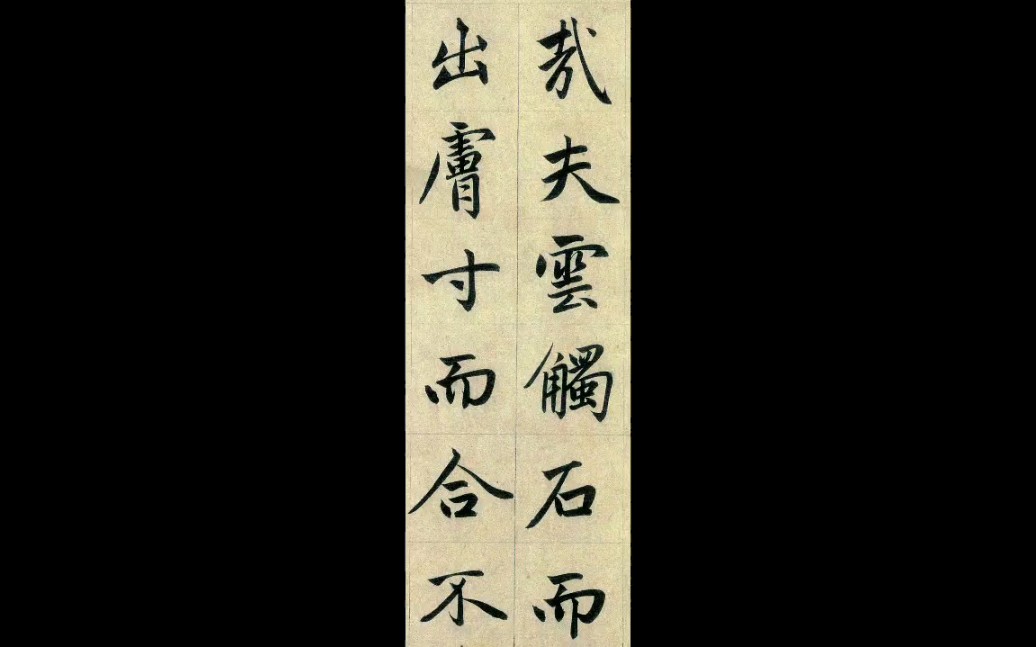 哉夫雲觸石而
出膚寸而合不